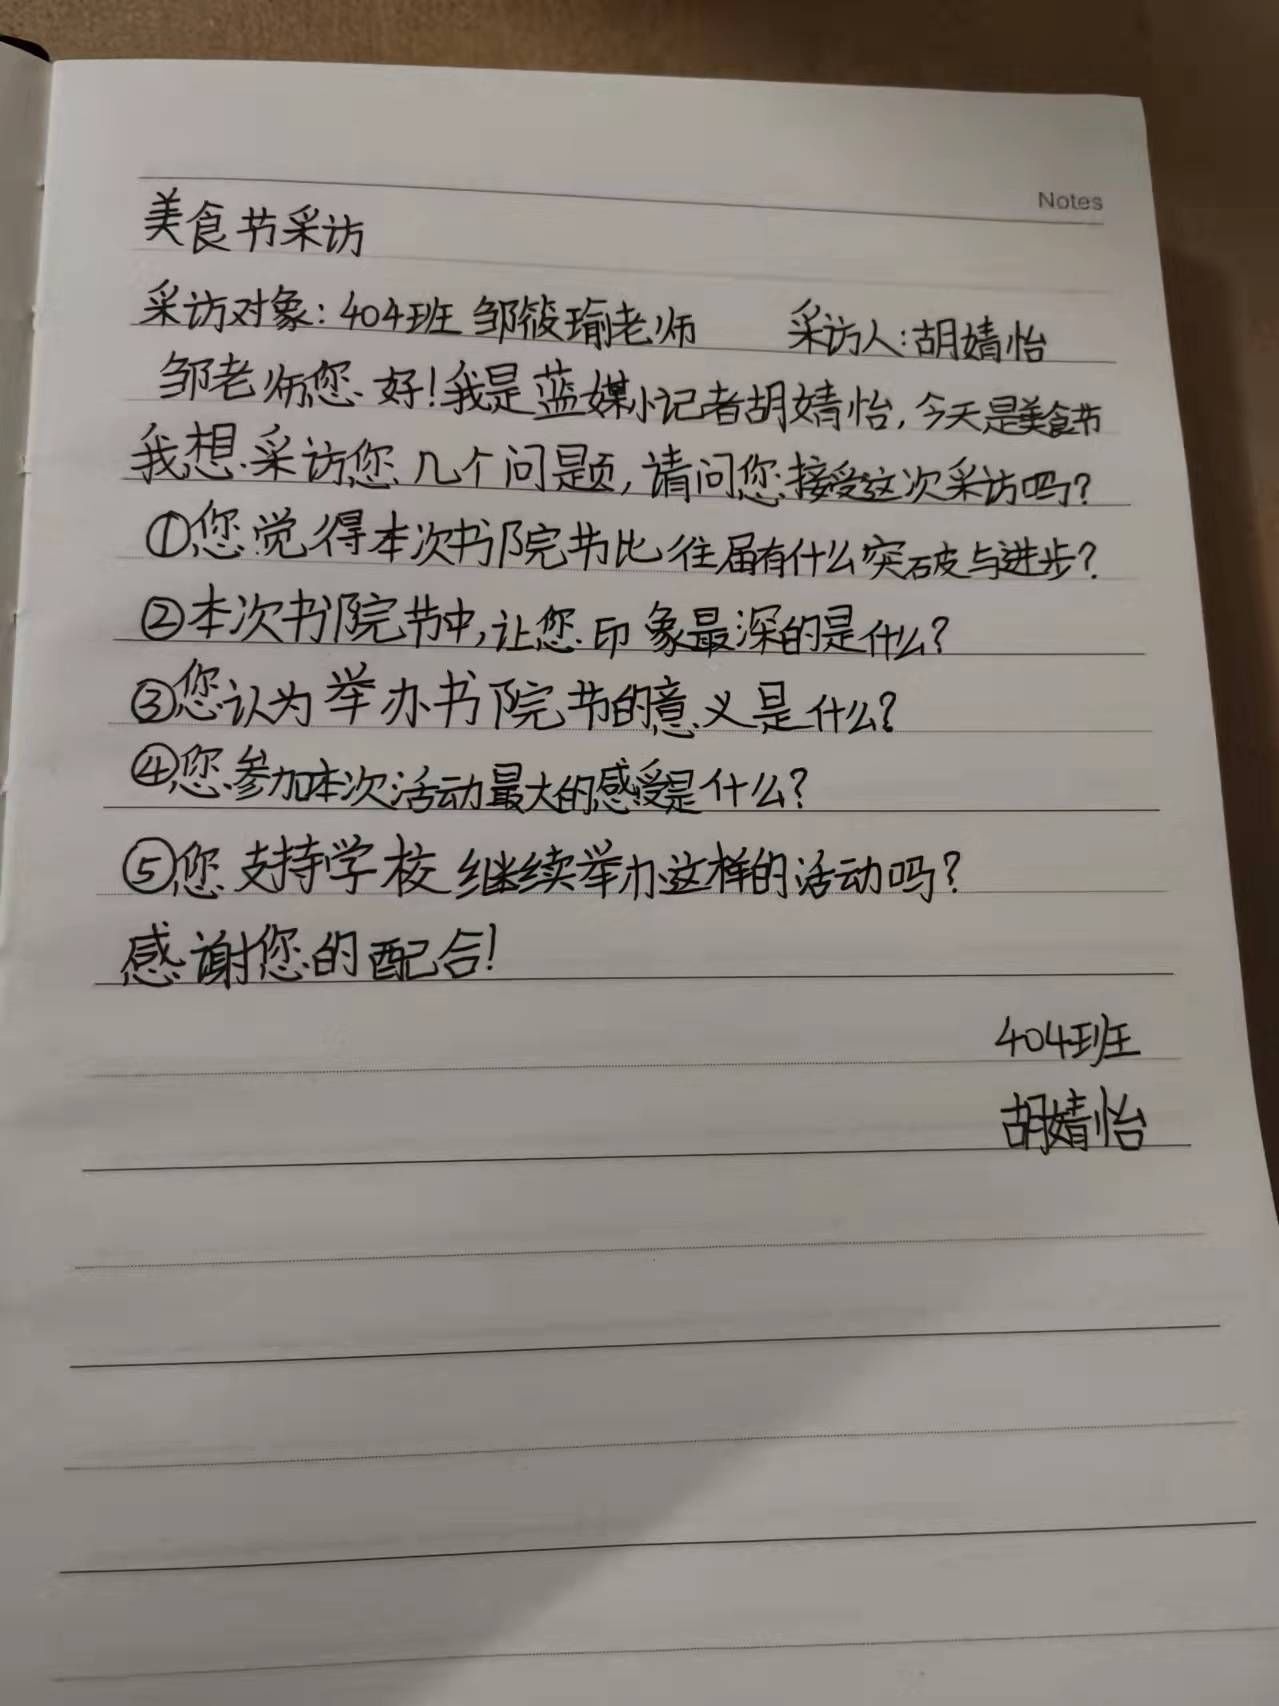 Notes
美食节采访
采访对象：404班 邹筱瑜老师 采访人：胡婧怡
邹老师您好！我是蓝媒小记者胡婧怡，今天是美食节
我想采访您几个问题，请问您接受这次采访吗？
①您觉得本次书院节比往届有什么突破与进步？
②本次书院节中，让您印象最深的是什么？
③您认为举办书院节的意义是什么？
④您参加本次活动最大的感受是什么？
⑤您支持学校继续举办这样的活动吗？
感谢您的配合！
404班
胡婧怡